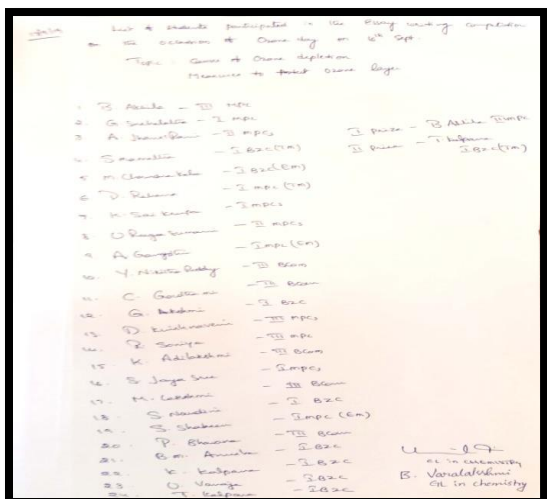 List of students participated in the Essay writing competition
on the occasion of Ozone day on 16th Sept.
Topic: Causes of Ozone depletion
Measures to protect Ozone layer
1. B. Akhila - III MPC
2. G. Snehalatha - I MPC
3. A. Jhansi Rani - II MPCs
I Prize - B Akhila III MPC
4. S - I BZC (TM)
II Prize - T Kalpana
I BZC (TM)
5. M. Chandra Kala - I BZC (EM)
6. D. Rehana - I MPC (TM)
7. K. Sai - I MPCs
8. U Raga Sumani - II MPCs
9. A Gangotri - I MPC (EM)
10. Y. Nikitha Reddy - III BCom
11. C. - III BCom
12. G. Lakshmi - I BZC
13. D. Krishnaveni - III MPCs
14. B. Soniya - III MPC
15. K. Adilakshmi - III BCom
16. S. Jaya Sree - I MPCs
17. M. Lakshmi - III BCom
18. S. Nandini - I BZC
19. S. Shabeen - I MPC (EM)
20. P. Bhavana - III BCom
21. B. M. - I BZC
22. K. Kalpana - I BZC
23. U. Vanaja - I BZC
24. T. Kalpana - I BZC
GL in CHEMISTRY
B. Varalakshmi
GL in chemistry